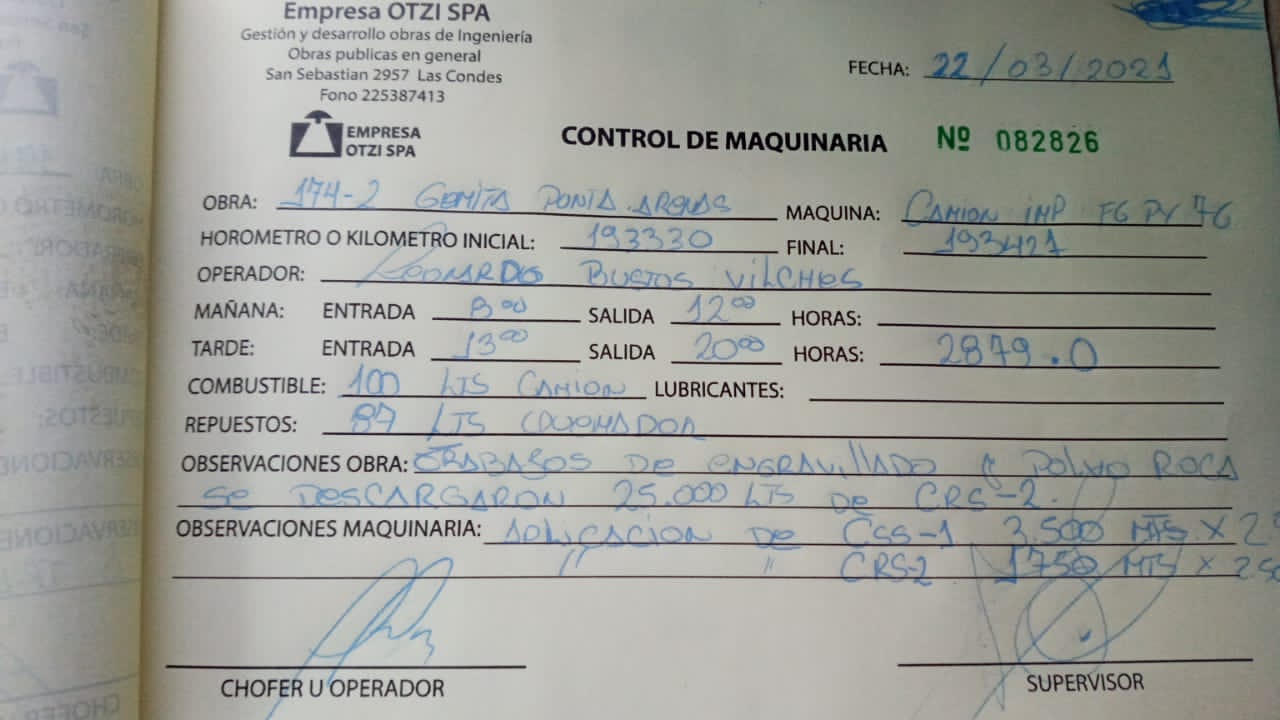 Empresa OTZI SPA
Gestión y desarrollo obras de Ingeniería
Obras publicas en general
San Sebastian 2957 Las Condes
Fono 225387413
FECHA: 22/03/2021
EMPRESA
OTZI SPA
CONTROL DE MAQUINARIA Nº 082826
OBRA: 174-2 PUNTA ARENAS MAQUINA: CAMION IMP FG PY 76
HOROMETRO O KILOMETRO INICIAL: 193330 FINAL: 193421
OPERADOR: LEONARDO BUSTOS VILCHES
MAÑANA: ENTRADA 8:00 SALIDA 12:00 HORAS:
TARDE: ENTRADA 13:00 SALIDA 20:00 HORAS: 2879.0
COMBUSTIBLE: 100 LTS CAMION LUBRICANTES:
REPUESTOS: 87 LTS QUEMADOR
OBSERVACIONES OBRA: TRABAJOS DE ENGRAVILLADO POLVO ROCA
SE DESCARGARON 25.000 LTS DE CRS-2.
OBSERVACIONES MAQUINARIA: APLICACION DE CSS-1 3.500 MTS X
" " CRS-2 1750 MTS X
CHOFER U OPERADOR SUPERVISOR